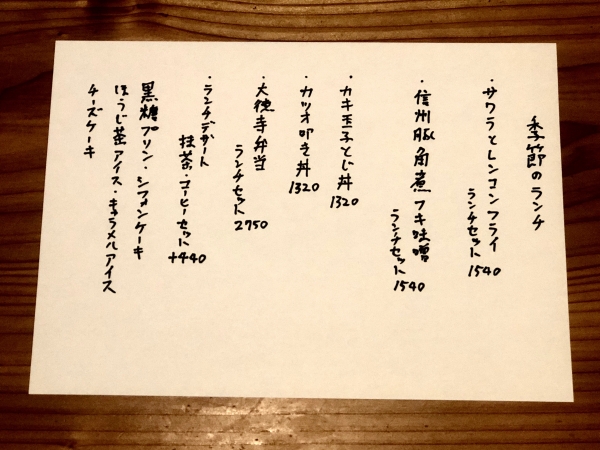 季節のランチ
・サワラとレンコンフライ
ランチセット 1540
・信州豚角煮フキ味噌
ランチセット 1540
・カキ玉子とじ丼
1320
・カツオ叩き丼
1320
・大徳寺弁当
ランチセット 2750
・ランチデザート
抹茶・コーヒーセット +440
黒糖プリン・シフォンケーキ
ほうじ茶アイス・きゃらメルアイス
チーズケーキ